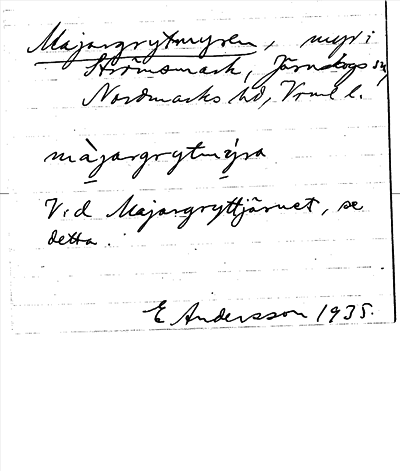 Majargrytmyren, myr i
Strömsmark, Järnskogs sn,
Nordmarks hd, Vrml l.
màjargrytmýra
Vid Majargryttjärnet, se
detta.
E Andersson 1935.